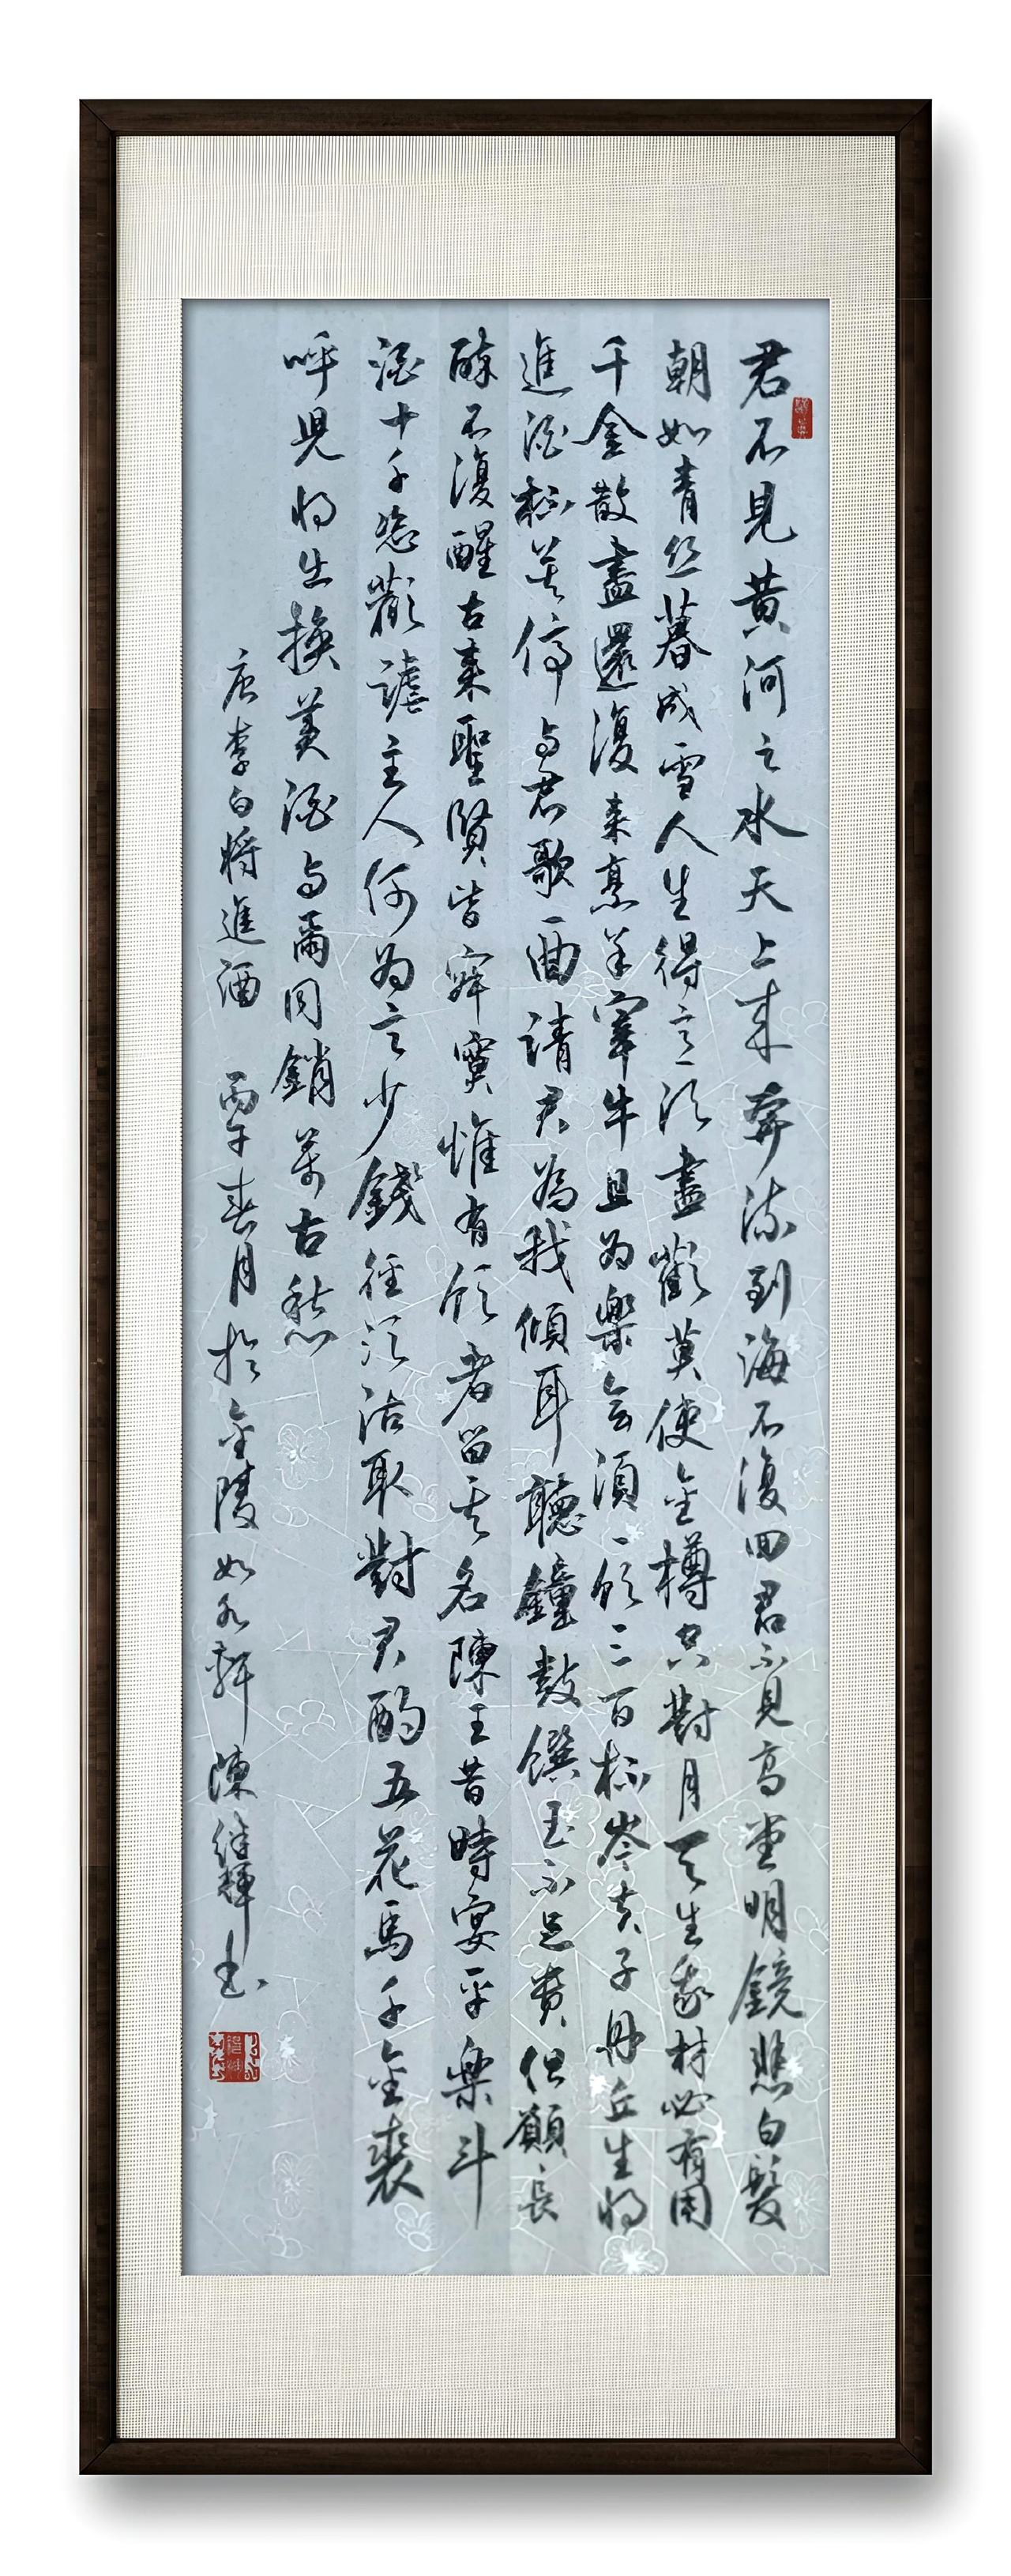 君不見黃河之水天上來奔流到海不復回君不見高堂明鏡悲白髮
朝如青絲暮成雪人生得意須盡歡莫使金樽空對月天生我材必有用
千金散盡還復來烹羊宰牛且為樂會須一飲三百杯岑夫子丹丘生將
進酒杯莫停與君歌一曲請君為我傾耳聽鐘鼓饌玉不足貴但願長
醉不復醒古來聖賢皆寂寞惟有飲者留其名陳王昔時宴平樂斗
酒十千恣歡謔主人何為言少錢徑須沽取對君酌五花馬千金裘
呼兒將出換美酒與爾同銷萬古愁
唐李白將進酒 丙午春月於金陵如水軒 陳繼輝書